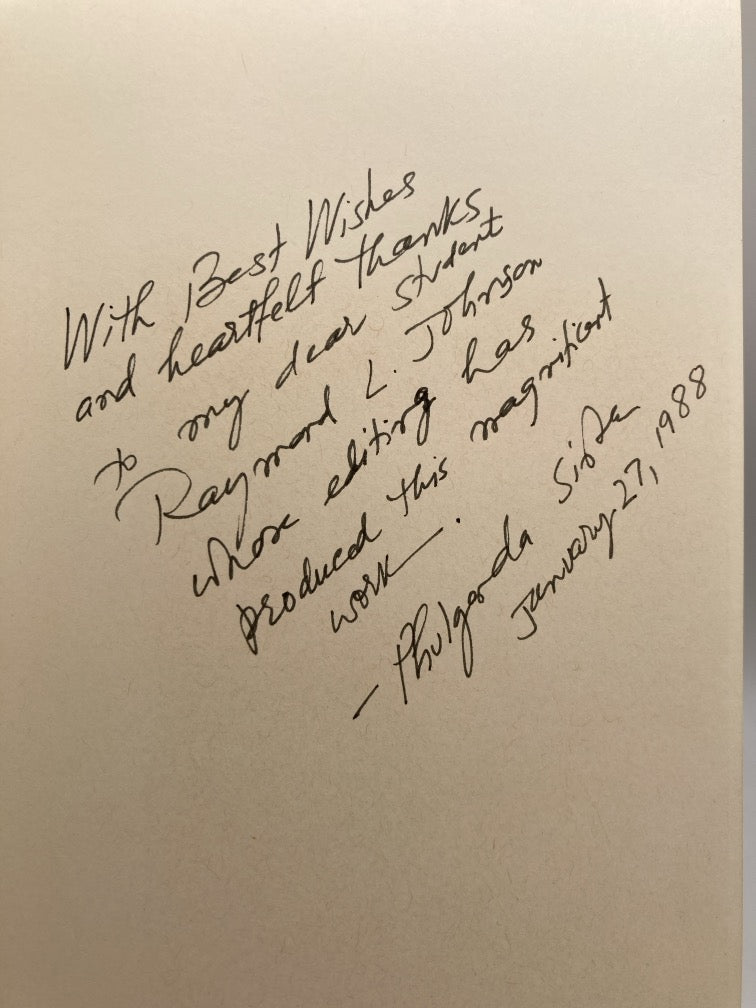 With Best Wishes
and heartfelt thanks
to my dear student
Raymond L. Johnson
whose editing has
produced this magnificent
work.
- Phulgenda Sinha
January 27, 1988